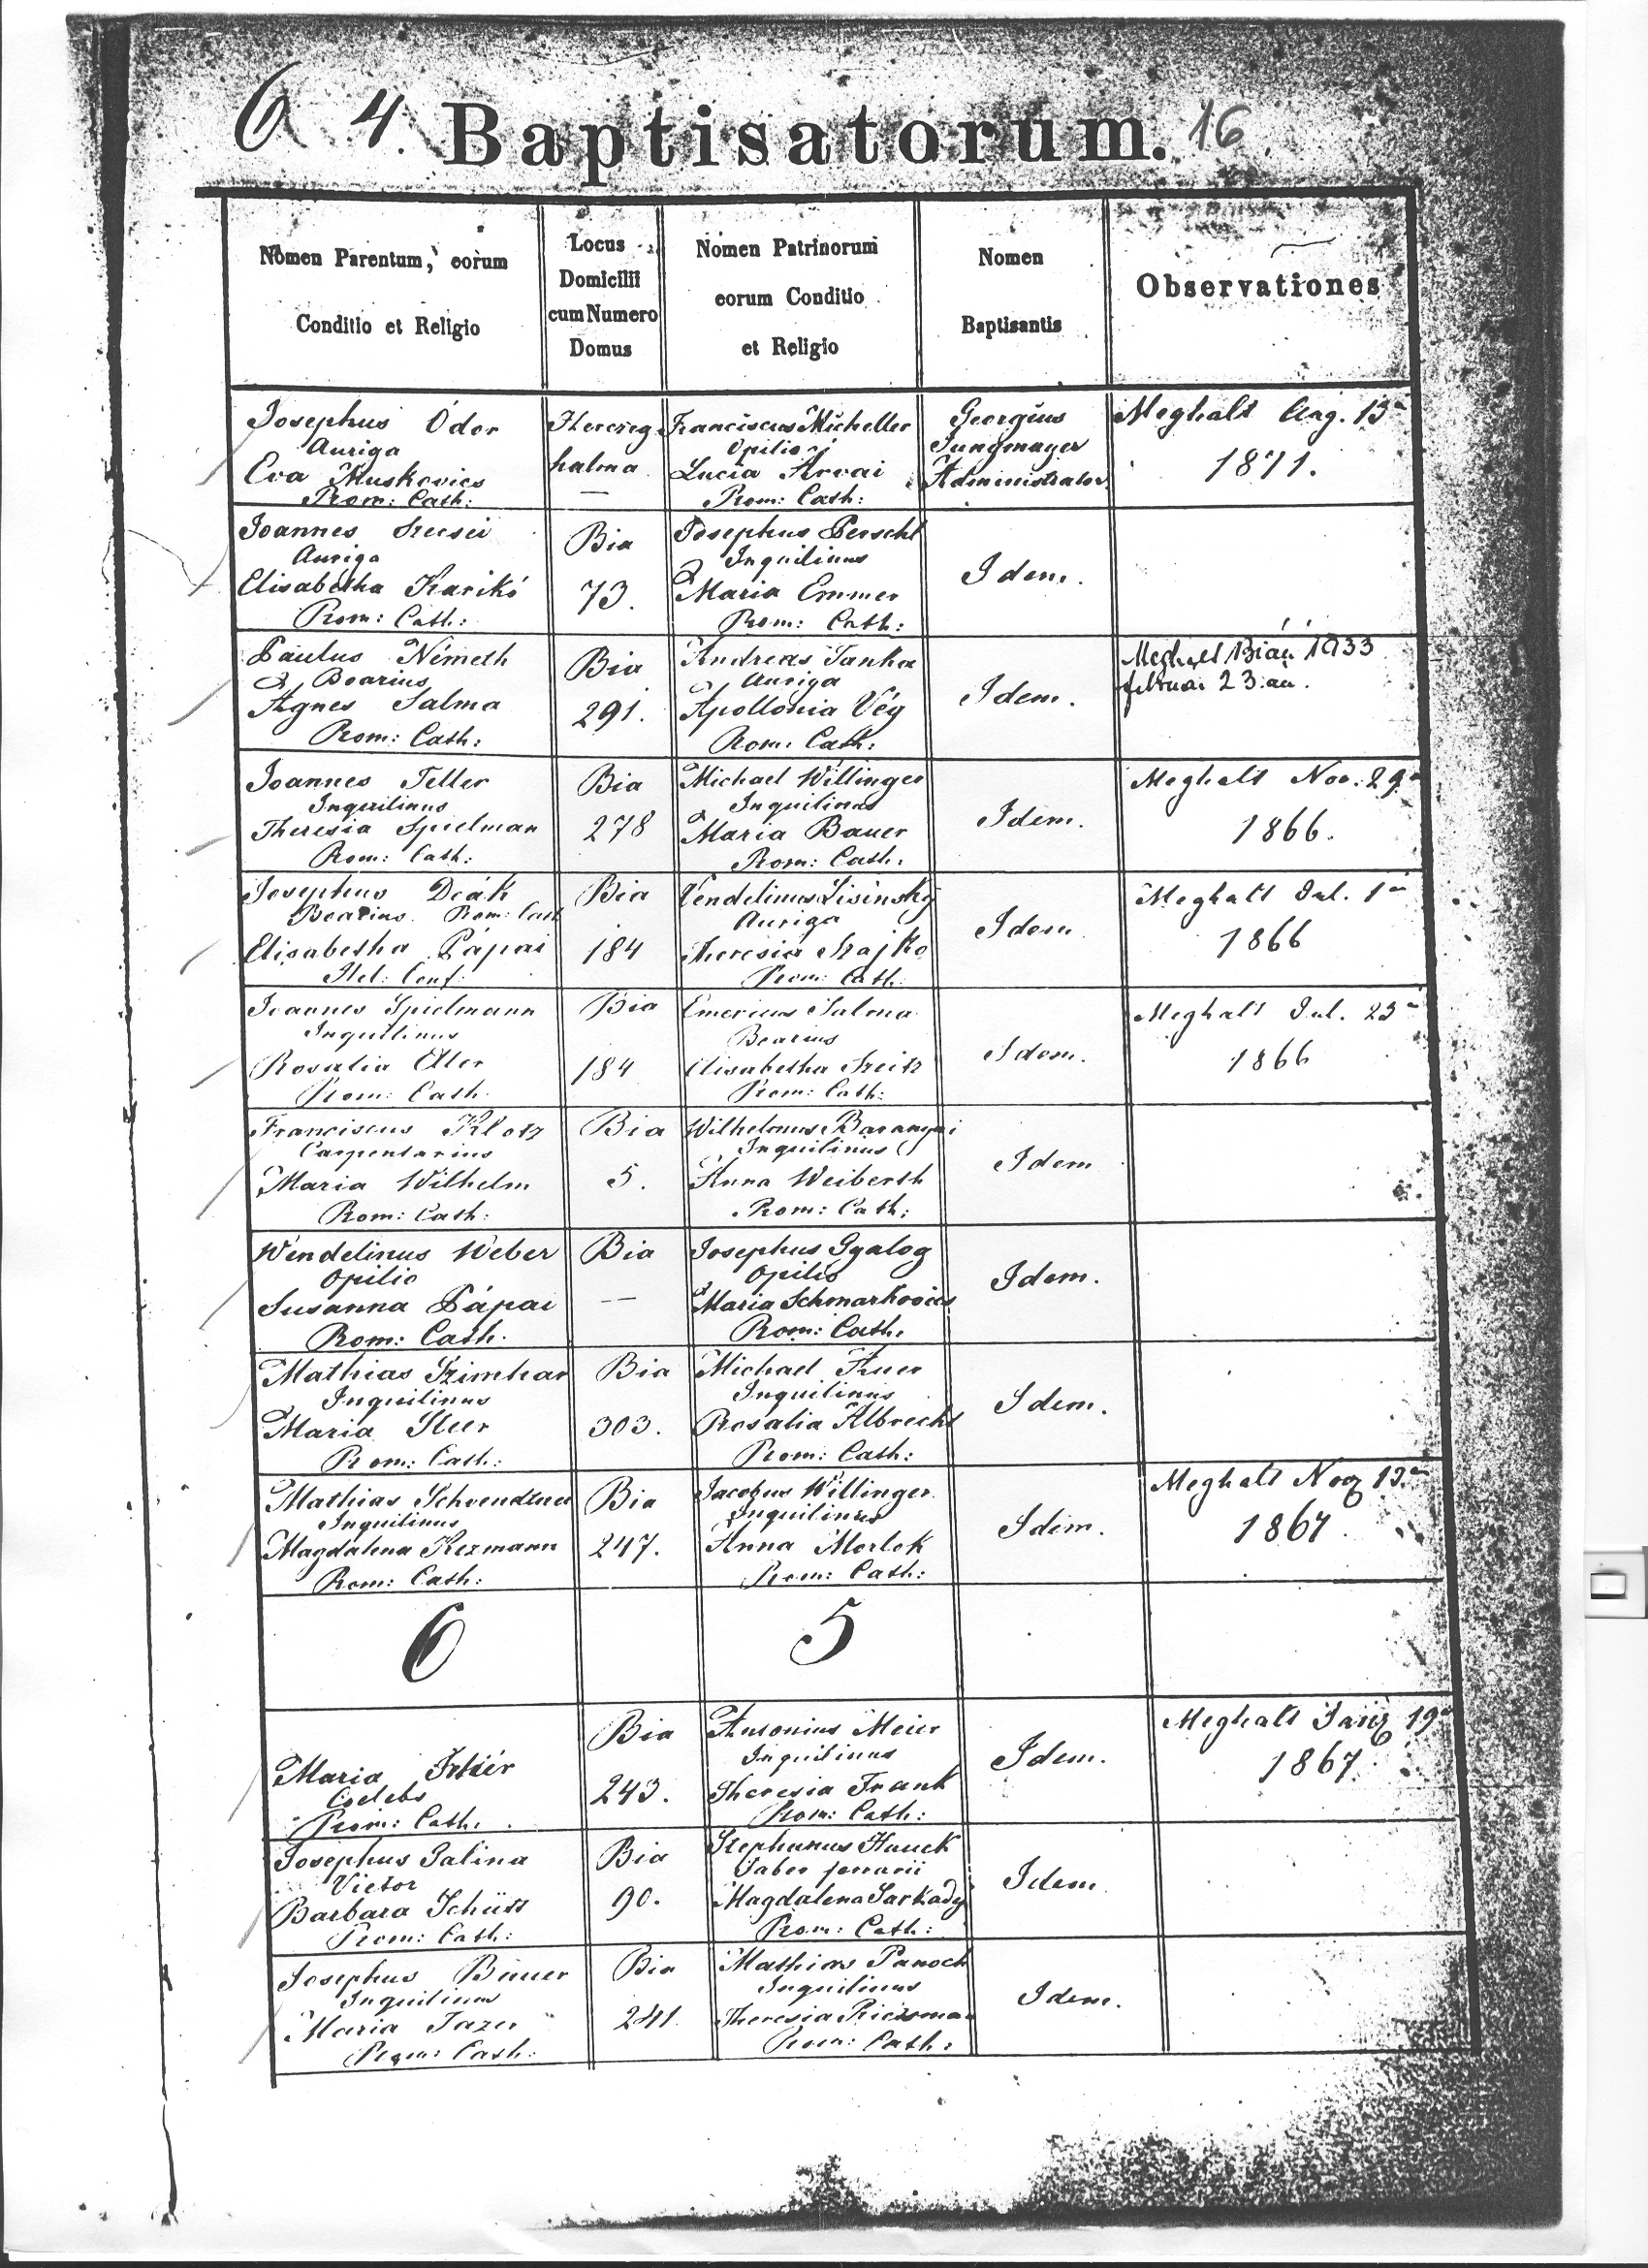 6 4. Baptisatorum. 16
Nomen Parentum, eorum
Conditio et Religio
Locus
Domicilii
cum Numero
Domus
Nomen Patrinorum
eorum Conditio
et Religio
Nomen
Baptisantis
Observationes
Josephus Ódor
Auriga
Eva Muskovics
Rom: Cath:
Herczeg
halma
—
Franciscus Micheller
Opilio
Lucia Árvai
Rom: Cath:
Georgius
Jungmayer
Administrator
Meghalt Aug. 13
1871.
Joannes Szecsei
Auriga
Elisabetha Karikó
Rom: Cath:
Bia
73.
Josephus Perschl
Inquilinus
Maria Emmer
Rom: Cath:
Idem.
Paulus Németh
Boarius
Agnes Salma
Rom: Cath:
Bia
291.
Andreas Tanka
Auriga
Apollonia Vég
Rom: Cath:
Idem.
Meghalt Bián 1933
februar 23.án.
Joannes Teller
Inquilinus
Theresia Spielman
Rom: Cath:
Bia
278
Michael Willinger
Inquilinus
Maria Bauer
Rom: Cath:
Idem.
Meghalt Nov. 29
1866.
Josephus Deák
Boarius. Rom: Cath
Elisabetha Pápai
Hel: Conf:
Bia
184
Vendelinus Lisinsky
Auriga
Theresia Szajko
Rom: Cath:
Idem
Meghalt Jul. 1
1866
Joannes Spielmann
Inquilinus
Rosalia Eller
Rom: Cath.
Bia
184
Emericus Salma
Boarius
Elisabetha Szeitz
Rom: Cath:
Idem.
Meghalt Jul. 23
1866
Franciscus Klotz
Carpentarius
Maria Wilhelm
Rom: Cath:
Bia
5.
Wilhelmus Baranyai
Inquilinus
Anna Weiberth
Rom: Cath:
Idem
Wendelinus Weber
Opilio
Susanna Pápai
Rom: Cath.
Bia
—
Josephus Gyalog
Opilio
Maria Schmarkovics
Rom: Cath.
Idem.
Mathias Szimhar
Inquilinus
Maria Steer
Rom: Cath:
Bia
303.
Michael Auer
Inquilinus
Rosalia Albrecht
Rom: Cath:
Idem.
Mathias Schvendtner
Inquilinus
Magdalena Kezmann
Rom: Cath:
Bia
247.
Jacobus Willinger
Inquilinus
Anna Morlok
Rom: Cath:
Idem.
Meghalt 13.
1867.
6 5
Maria
Coelebs
Rom: Cath.
Bia
243.
Antonius Meier
Inquilinus
Theresia Frank
Rom: Cath:
Idem.
Meghalt 19
1867.
Josephus Galina
Vietor
Barbara Schütt
Rom: Cath:
Bia
90.
Stephanus Hauck
Faber ferrarii
Magdalena Sarkady
Rom: Cath:
Idem
Josephus Bauer
Inquilinus
Maria Tazer
Rom: Cath:
Bia
241.
Mathias Panoch
Inquilinus
Theresia
Rom: Cath:
Idem.